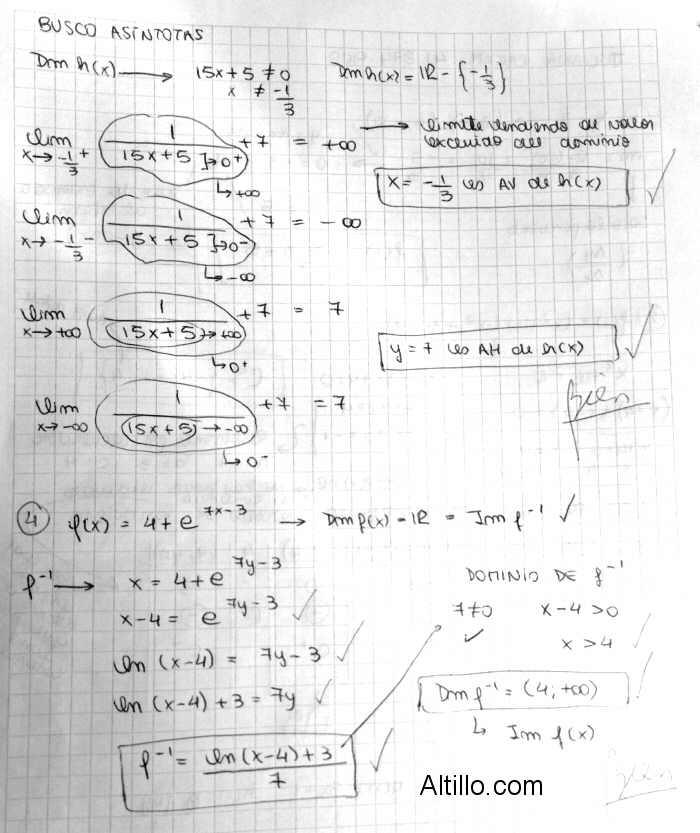 BUSCO ASÍNTOTAS
Dm h(x) → 15x+5 ≠ 0 Dm h(x) = IR - {-1/3}
x ≠ -1/3
lim x→-1/3+ 1/(15x+5]→0+) +7 = +∞ → límite tendiendo al valor
excluido del dominio
↳ +∞
x = -1/3 es AV de h(x) ✓
lim x→-1/3- 1/(15x+5]→0-) +7 = -∞
↳ -∞
lim x→+∞ 1/((15x+5)→+∞) +7 = 7
↳ 0+
y = 7 es AH de h(x) ✓
lim x→-∞ 1/((15x+5)→-∞) +7 = 7
↳ 0-
Bien
4 f(x) = 4 + e^(7x-3) → Dm f(x) = IR = Im f^-1 ✓
f^-1 → x = 4 + e^(7y-3)
x-4 = e^(7y-3) ✓
ln (x-4) = 7y-3 ✓
ln (x-4) + 3 = 7y ✓
f^-1 = (ln (x-4) + 3)/7 ✓
DOMINIO DE f^-1
7≠0 x-4 > 0
✓ x > 4 ✓
Dm f^-1 = (4; +∞) ✓
↳ Im f(x)
Bien
Altillo.com